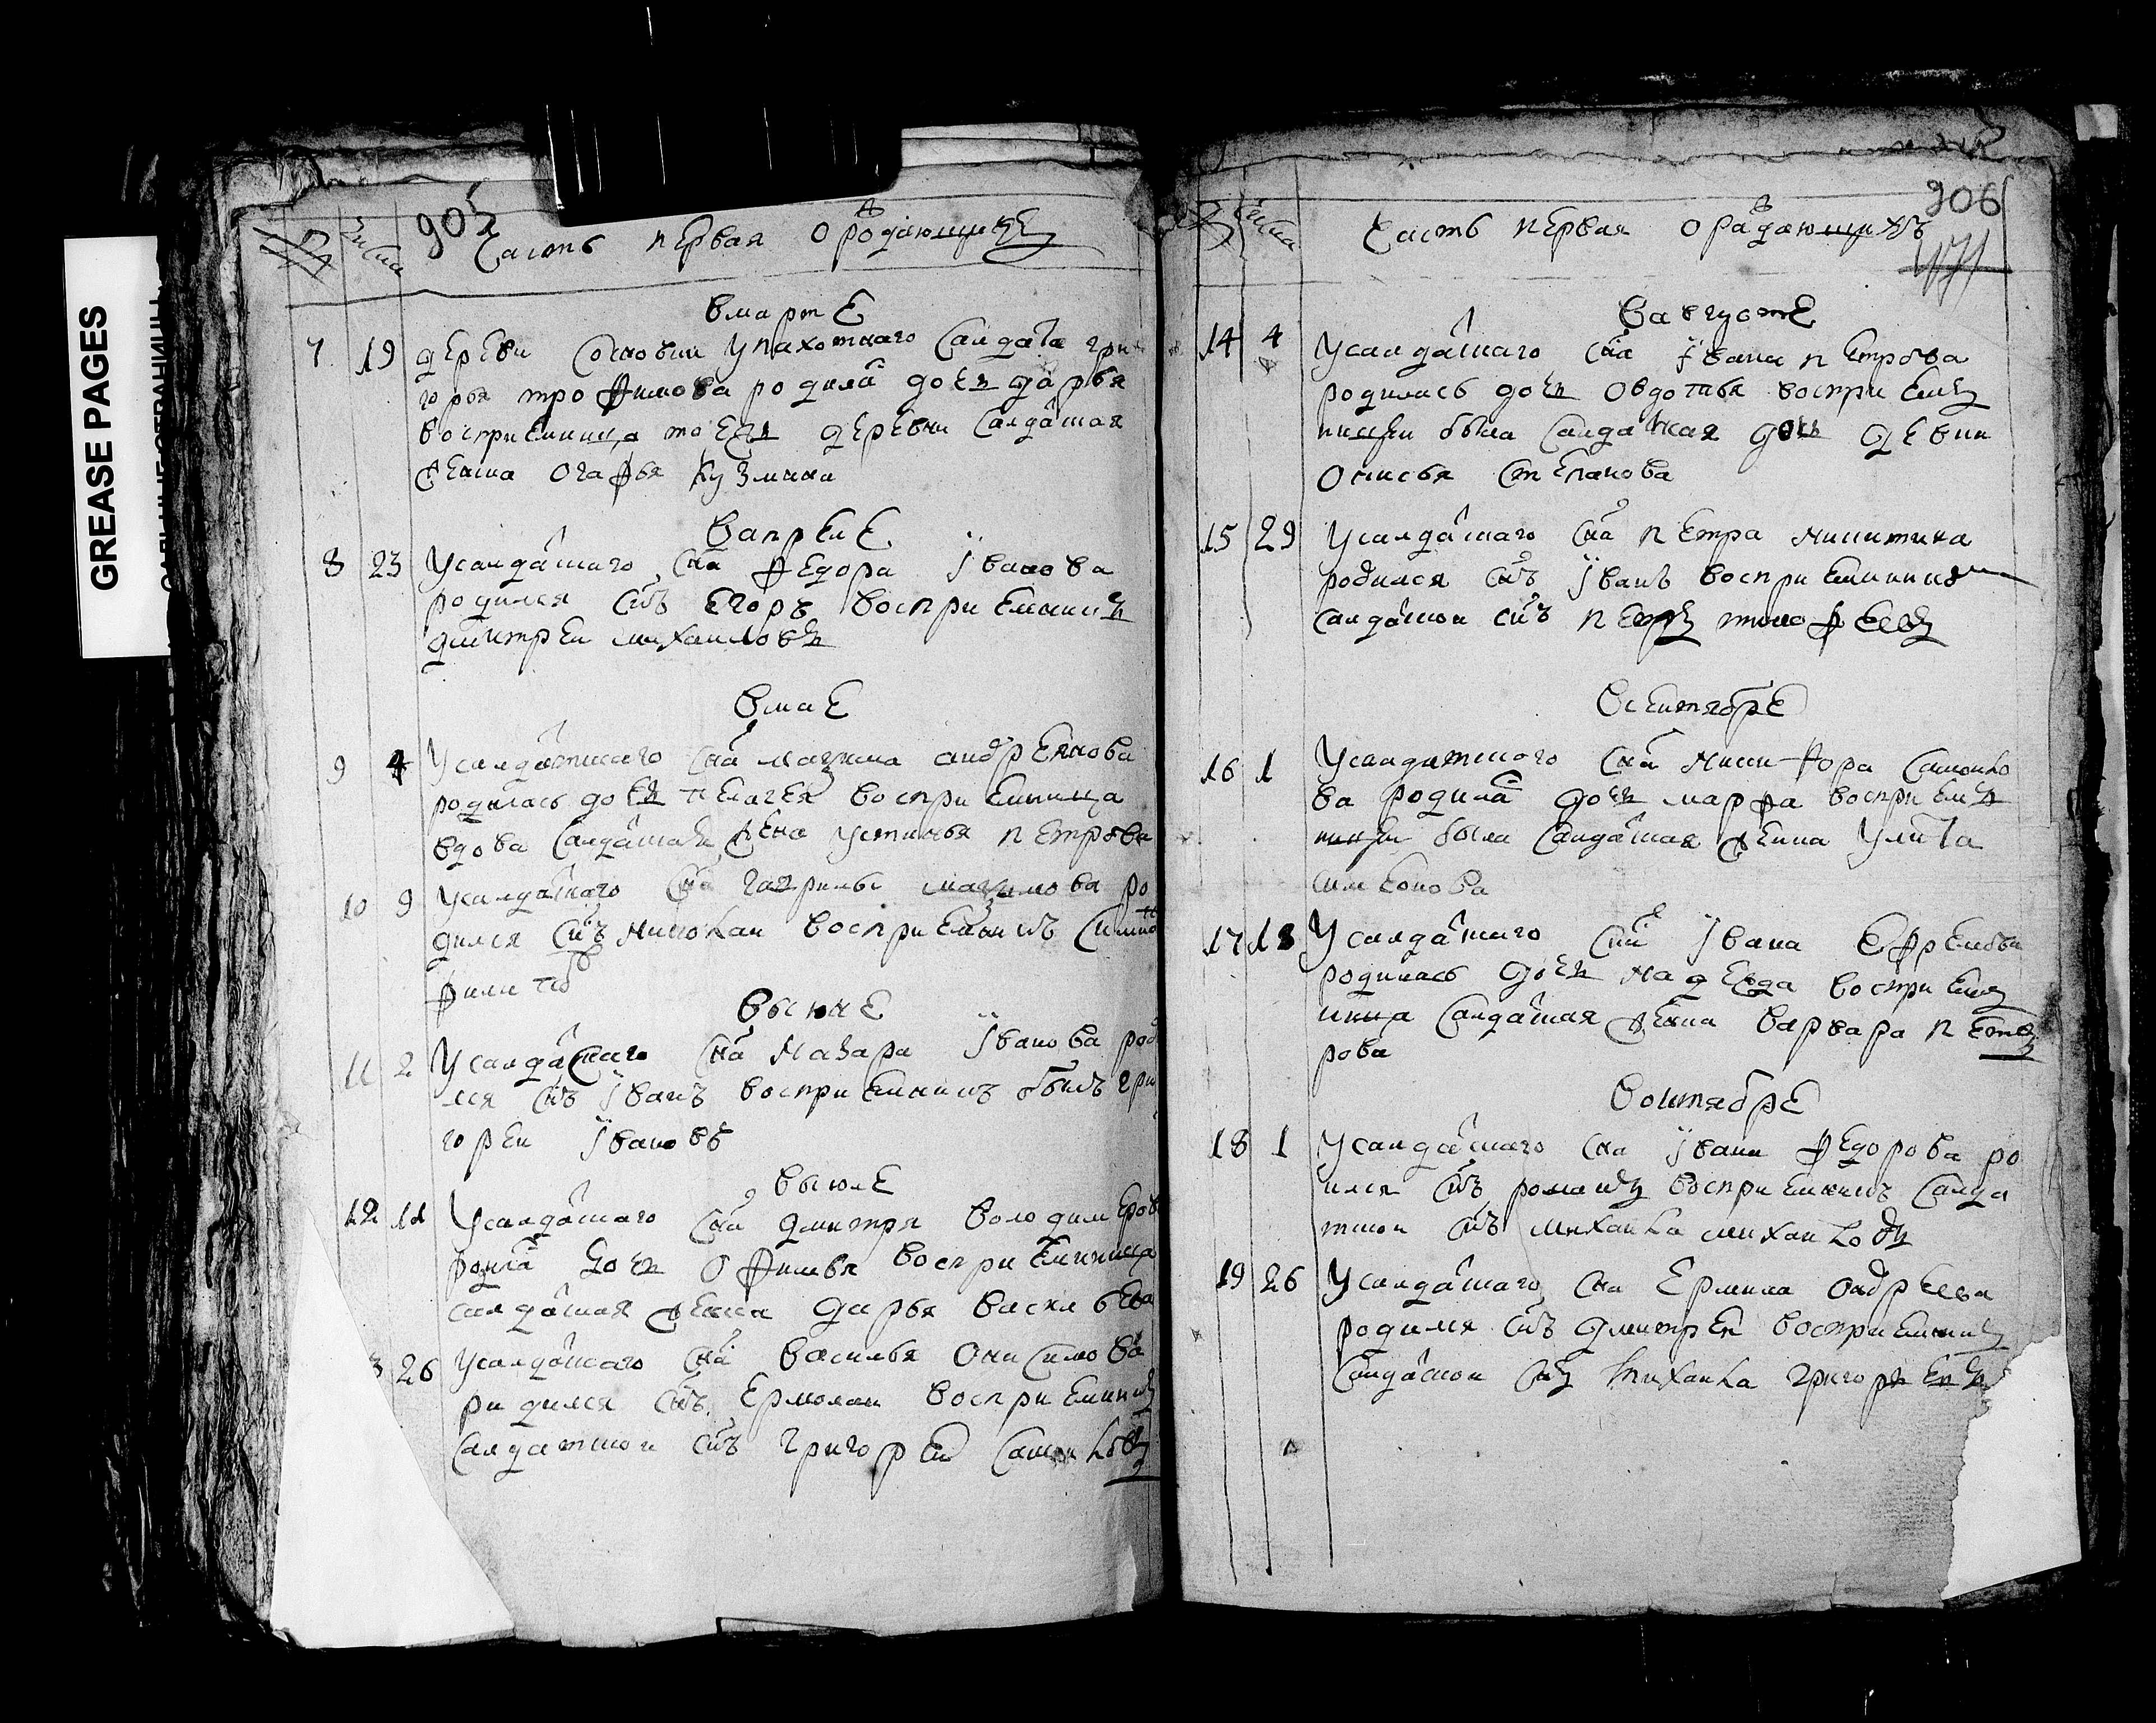 GREASE PAGES
905
часть первая о раждающихся
числа
в марте
7 19 деревни Сосновки у пахотнаго салдата гри
горья трофимова родилас дочь дарья
восприемница тоежъ деревни салдатская
жена огафья кузмина
в апреле
8 23 У салдатцкаго сна федора Iванова
родился снъ Егоръ восприемникъ
дмитрей михаиловъ
в мае
9 4 У салдатцкаго сна андреянова
родилась дочь пелагея восприемница
вдова салдатская жена устинья петрова
10 9 У салдатцкаго сна гаврилы ро
дился снъ николаи восприемникъ
в июне
11 2 У салдатцкаго сна назара Iванова роди
лся снъ Iванъ восприемникъ былъ гри
гореи Iвановъ
в июле
12 11 У салдатцкаго сна дмитрия володимеров
родилас дочь офимья восприемница
салдатская жена дарья васильева
3 26 У салдатцкаго сна василья онисимова
радился снъ Ермолаи восприемникъ
салдатскои снъ григореи самоиловъ
906
часть первая о раждающихъ
числа
в августе
14 4 У салдатцкаго сна Iвана петрова
родилась дочь овдотья восприем
ницею была салдатская дочь девка
онисья степанова
15 29 У салдатцкаго сна петра никитина
родился снъ Iванъ восприемникъ
салдатскои снъ петръ тимофеевъ
в сентябре
16 1 У салдатцкого сна никифора самоило
ва родилас дочь марфа восприем
ницею была салдатская жена улита
симеонова
17 18 У салдатцкаго сна Iвана Ефремова
родилась дочь надежда восприем
ница салдатская жена варвара пет
рова
в октябре
18 1 У салдатцкаго сна Iвана федорова ро
дился снъ романъ восприемникъ салда
тцкои снъ михаила михаиловъ
19 26 У салдатцкаго сна Ермила ондреева
родился снъ дмитреи восприемникъ
салдатскои снъ михаила григорьевъ